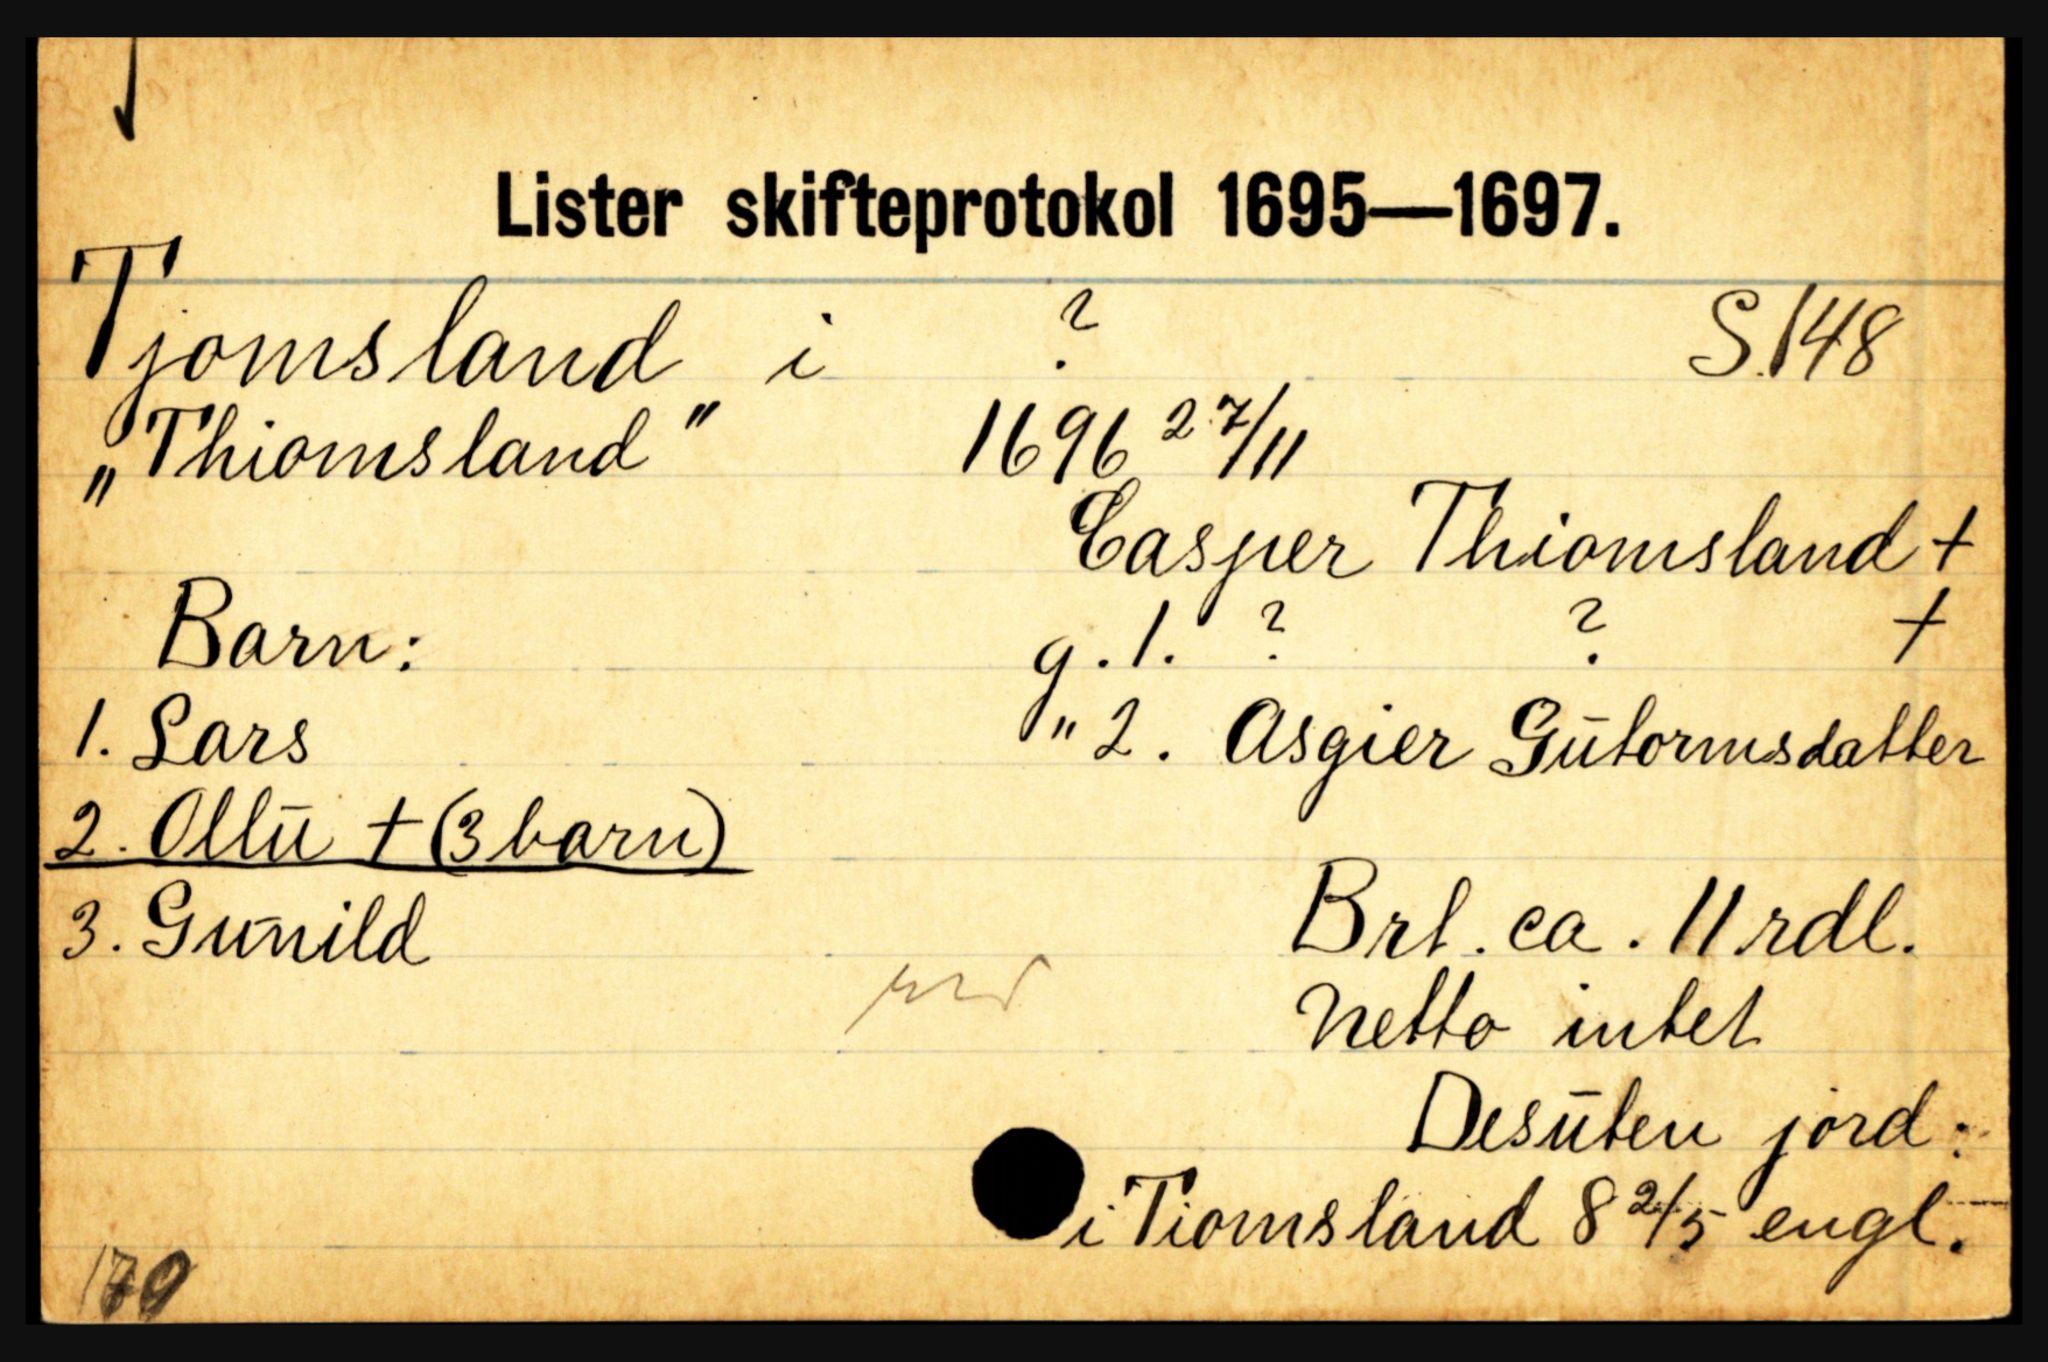 Lister skifteprotokol 1695—1697.
Tjomsland i ? S. 148
„Thiomsland" 1696 27/11
Casper Thiomsland +
Barn: g. 1. ? ? +
1. Lars " 2. Asgier Gūtormsdatter
2. Ollū + (3 barn)
3. Gunild Brt. ca. 11 rdl.
Netto intet
Desūten jord:
i Tiomsland 8 2/5 engl.